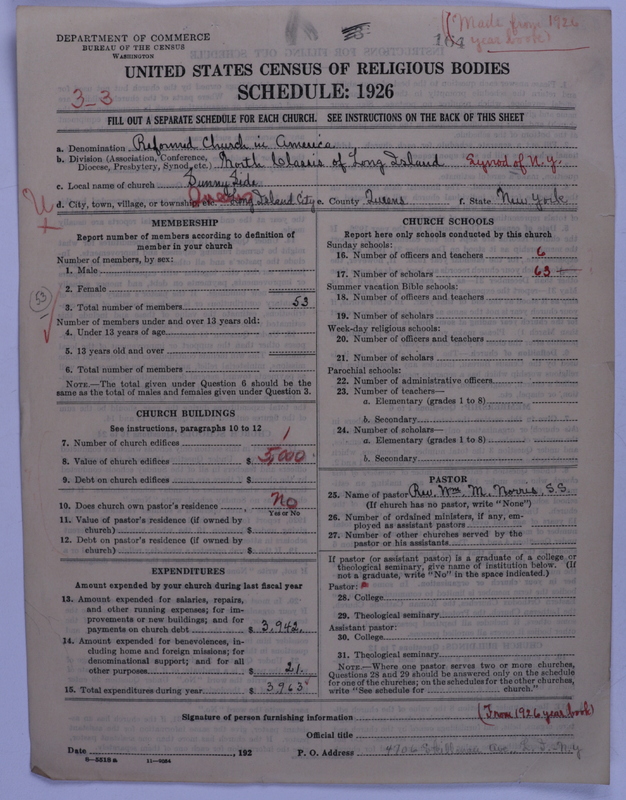 (Made from 1926
year book)
164
DEPARTMENT OF COMMERCE
BUREAU OF THE CENSUS
WASHINGTON
UNITED STATES CENSUS OF RELIGIOUS BODIES
3-3
SCHEDULE: 1926
FILL OUT A SEPARATE SCHEDULE FOR EACH CHURCH. SEE INSTRUCTIONS ON THE BACK OF THIS SHEET
a. Denomination Reformed Church in America
b. Division (Association, Conference, Diocese, Presbytery, Synod, etc.) North Classis of Long Island Synod of N.Y.
c. Local name of church Sunny Side
d. City, town, village, or township, etc. Long Island City e. County Queens f. State New York
MEMBERSHIP
Report number of members according to definition of
member in your church
Number of members, by sex:
1. Male
2. Female
3. Total number of members 53
53
Number of members under and over 13 years old:
4. Under 13 years of age
5. 13 years old and over
6. Total number of members
NOTE.—The total given under Question 6 should be the
same as the total of males and females given under Question 3.
CHURCH BUILDINGS
See instructions, paragraphs 10 to 12
7. Number of church edifices 1
8. Value of church edifices $ 5,000
9. Debt on church edifices $
10. Does church own pastor's residence No
Yes or No
11. Value of pastor's residence (if owned by
church) $
12. Debt on pastor's residence (if owned by
church) $
EXPENDITURES
Amount expended by your church during last fiscal year
13. Amount expended for salaries, repairs,
and other running expenses; for im-
provements or new buildings; and for
payments on church debt $ 3,942
14. Amount expended for benevolences, in-
cluding home and foreign missions; for
denominational support; and for all
other purposes $ 21
15. Total expenditures during year $ 3963
CHURCH SCHOOLS
Report here only schools conducted by this church
Sunday schools:
16. Number of officers and teachers 6
17. Number of scholars 63
Summer vacation Bible schools:
18. Number of officers and teachers
19. Number of scholars
Week-day religious schools:
20. Number of officers and teachers
21. Number of scholars
Parochial schools:
22. Number of administrative officers
23. Number of teachers—
a. Elementary (grades 1 to 8)
b. Secondary
24. Number of scholars—
a. Elementary (grades 1 to 8)
b. Secondary
PASTOR
25. Name of pastor Rev. Wm. M. Norris, S.S.
(If church has no pastor, write "None")
26. Number of ordained ministers, if any, em-
ployed as assistant pastors
27. Number of other churches served by the
pastor or his assistants
If pastor (or assistant pastor) is a graduate of a college or
theological seminary, give name of institution below. (If
not a graduate, write "No" in the space indicated.)
Pastor:
28. College
29. Theological seminary
Assistant pastor:
30. College
31. Theological seminary
NOTE.—Where one pastor serves two or more churches,
Questions 28 and 29 should be answered only on the schedule
for one of the churches; on the schedules for the other churches,
write "See schedule for church."
Signature of person furnishing information (From 1926 year book)
Official title
Date , 192 P. O. Address
8-5518a 11-9224